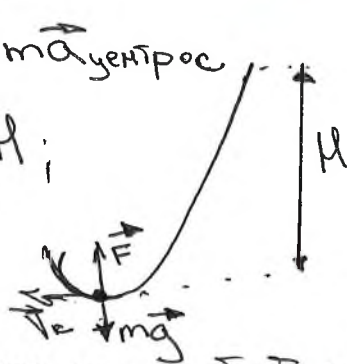 ma⃗центрос
H;
H
F⃗
V⃗к
mg⃗